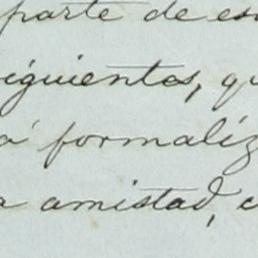 parte de es
siguientes, qu
á formaliz
a amistad, c